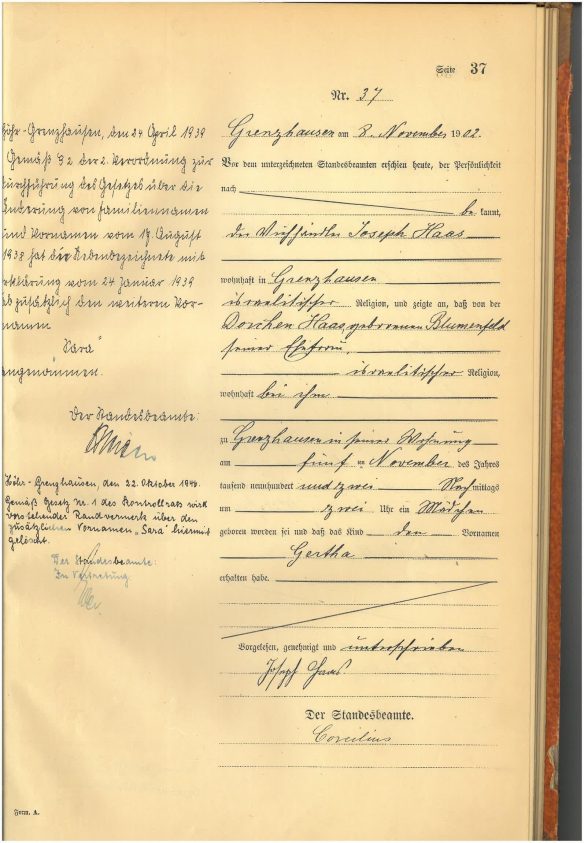 Seite 37
Nr. 37
Grenzhausen am 8. November 1902.
Vor dem unterzeichneten Standesbeamten erschien heute, der Persönlichkeit
nach
be kannt,
der Viehhändler Joseph Haas
wohnhaft in Grenzhausen
israelitischer Religion, und zeigte an, daß von der
Dorchen Haas, geborenen Blumenfeld
seiner Ehefrau,
israelitischer Religion,
wohnhaft bei ihm
zu Grenzhausen in seiner Wohnung
am fünf ten November des Jahres
tausend neunhundert und zwei Nachmittags
um zwei Uhr ein Mädchen
geboren worden sei und daß das Kind den Vornamen
Gertha
erhalten habe.
Vorgelesen, genehmigt und unterschrieben
Joseph Haas
Der Standesbeamte.
Corcilius
Form. A.
öhr-Grenzhausen, den 24 April 1939
Gemäß § 2 der 2. Verordnung zur
durchführung des Gesetzes über die
Änderung von Familiennamen
und Vornamen vom 17. August
1938 hat die Nebenbezeichnete mit
erklärung vom 24 Januar 1939
ab zusätzlich den weiteren Vor-
namen
Sara"
angenommen.
Der Standesbeamte:
Höhr-Grenzhausen, den 22. Oktober 1948.
Gemäß Gesetz Nr. 1 des Kontrollrats wird
vorstehender Randvermerk über den
zusätzlichen Vornamen „Sara" hiermit
gelöscht.
Der Standesbeamte:
In Vertretung